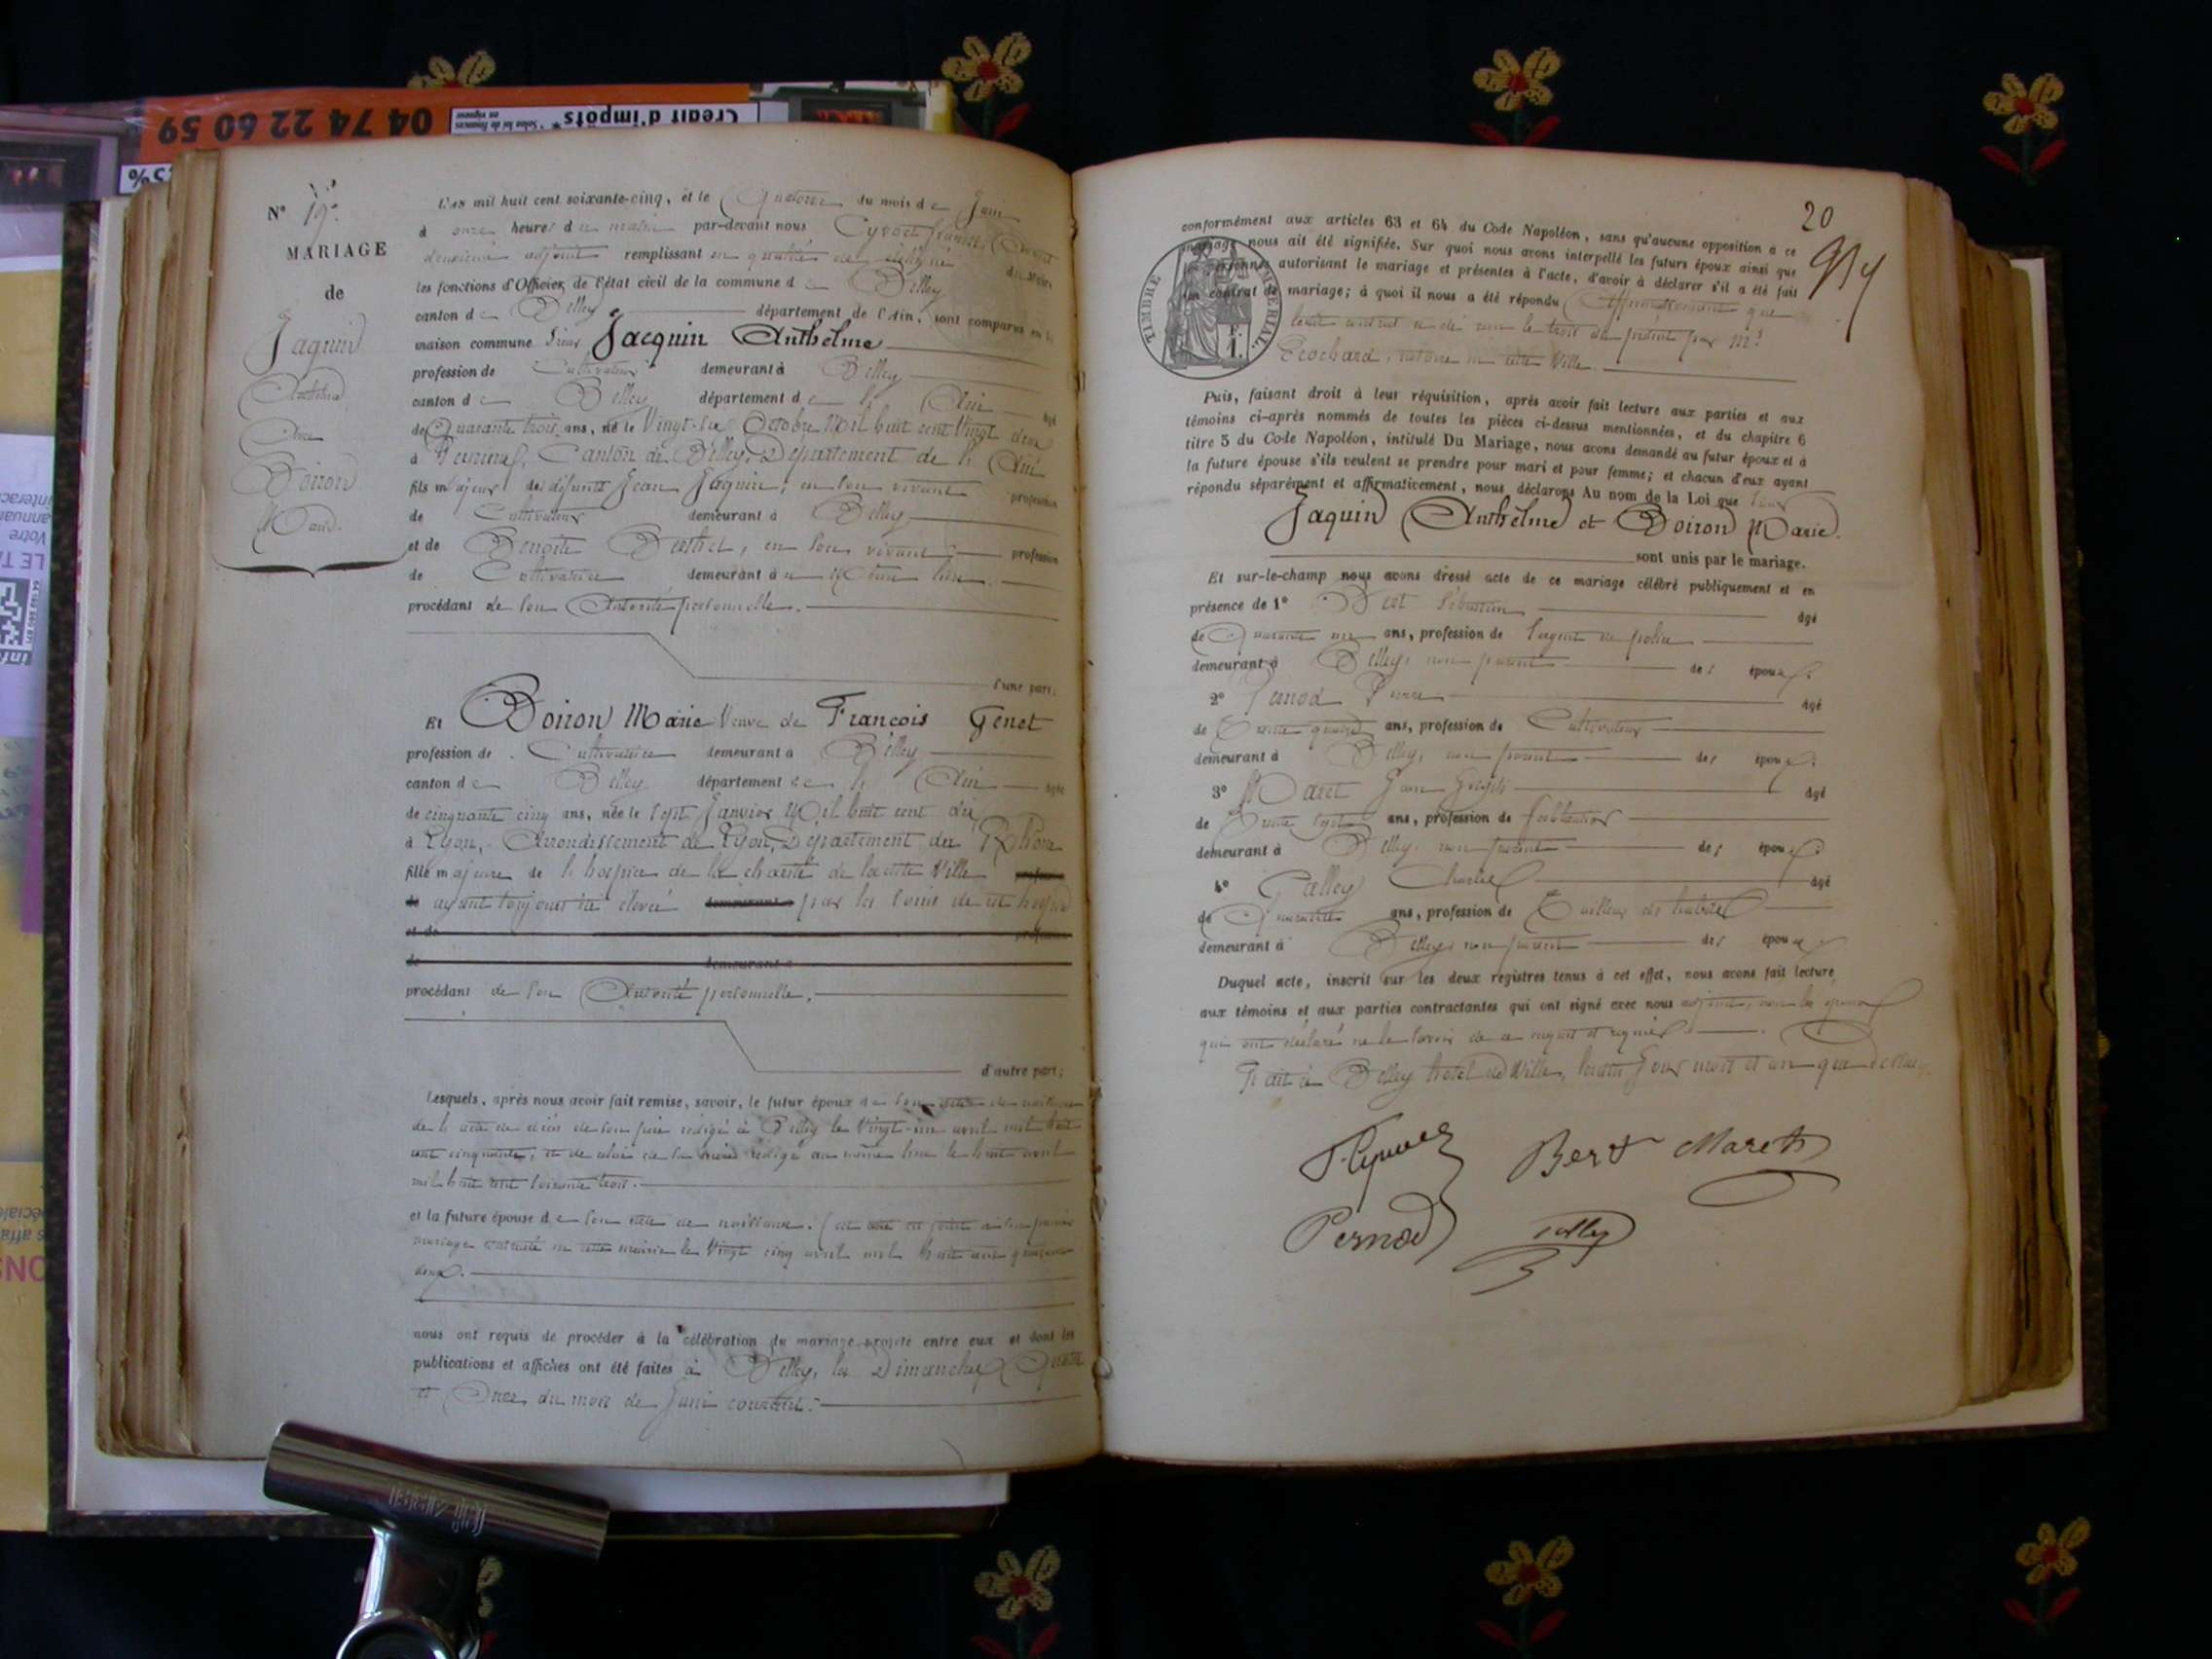 04 74 22 60 59
Crédit d'impôts
N° 19
MARIAGE
de
Jaquin
Anthelme
Avec
Boiron
Marie
L'an mil huit cent soixante-cinq, et le Quatorze du mois de Juin
à onze heures du matin par-devant nous
deuxième adjoint remplissant en qualité de délégué du Maire
les fonctions d'Officier de l'état civil de la commune de Belley
canton de Belley département de l'Ain, sont comparus en la
maison commune Sieur Jacquin Anthelme
profession de Cultivateur demeurant à Belley
canton de Belley département de l' Ain âgé
de Quarante trois ans, né le Vingt-six Octobre Mil huit cent Vingt deux
à Canton de Belley, Département de l'Ain
fils majeur de défunts Jean Jaquin, en son vivant profession
de Cultivateur demeurant à Belley,
et de Benoite en son vivant profession
de Cultivatrice demeurant à même lieu.
procédant de son Autorité personnelle.
d'une part;
Et Boiron Marie Veuve de François Genet
profession de Cultivatrice demeurant à Belley
canton de Belley département de l' Ain âgée
de cinquante cinq ans, née le sept Janvier Mil huit cent dix
à Lyon, Arrondissement de Lyon, Département du Rhône
fille majeure de l'hospice de la charité de la dite Ville profession
de ayant toujours été élevée demeurant à par les soins de cet hospice
et de profession
de demeurant à
procédant de son Autorité personnelle,
d'autre part;
Lesquels, après nous avoir fait remise, savoir, le futur époux de son acte de naissance
de l'acte de décès de son père rédigé à Belley le Vingt-un avril mil huit
cent cinquante, et de celui de sa mère rédigé au même lieu le huit avril
mil huit cent soixante trois.
et la future épouse de son acte de naissance. (cet acte est joint à son premier
mariage contracté en cette mairie le Vingt cinq avril mil huit cent quarante
deux.
nous ont requis de procéder à la célébration du mariage projeté entre eux et dont les
publications et affiches ont été faites à Belley, les Dimanches Quatre
et Onze du mois de Juin courant.
20
conformément aux articles 63 et 64 du Code Napoléon, sans qu'aucune opposition à ce
mariage nous ait été signifiée. Sur quoi nous avons interpellé les futurs époux ainsi que
personnes autorisant le mariage et présentes à l'acte, d'avoir à déclarer s'il a été fait
un contrat de mariage; à quoi il nous a été répondu Affirmativement que
le dit contrat a été reçu le trois du présent par Me
Ecochard, notaire en cette Ville.
TIMBRE IMPÉRIAL
1 F.
Puis, faisant droit à leur réquisition, après avoir fait lecture aux parties et aux
témoins ci-après nommés de toutes les pièces ci-dessus mentionnées, et du chapitre 6
titre 5 du Code Napoléon, intitulé Du Mariage, nous avons demandé au futur époux et à
la future épouse s'ils veulent se prendre pour mari et pour femme; et chacun d'eux ayant
répondu séparément et affirmativement, nous déclarons Au nom de la Loi que Sieur
Jaquin Anthelme et Boiron Marie.
sont unis par le mariage.
Et sur-le-champ nous avons dressé acte de ce mariage célébré publiquement et en
présence de 1° Bert Sébastien âgé
de Quarante ans, profession de Sergent de police
demeurant à Belley, non parent des époux.
2° Pernod Pierre âgé
de Trente quatre ans, profession de Cultivateur
demeurant à Belley, non parent des époux.
3° Maret Jean Joseph âgé
de Trente sept ans, profession de ferblantier
demeurant à Belley, non parent des époux.
4° Galley Charles âgé
de Quarante ans, profession de Tailleur de habits
demeurant à Belley, non parent des époux
Duquel acte, inscrit sur les deux registres tenus à cet effet, nous avons fait lecture
aux témoins et aux parties contractantes qui ont signé avec nous adjoint, non les époux
qui ont déclaré ne le savoir de ce enquis et requis.
Fait à Belley hotel de Ville, les dits jour mois et an que dessus.
Bert Maret
Pernod Galley